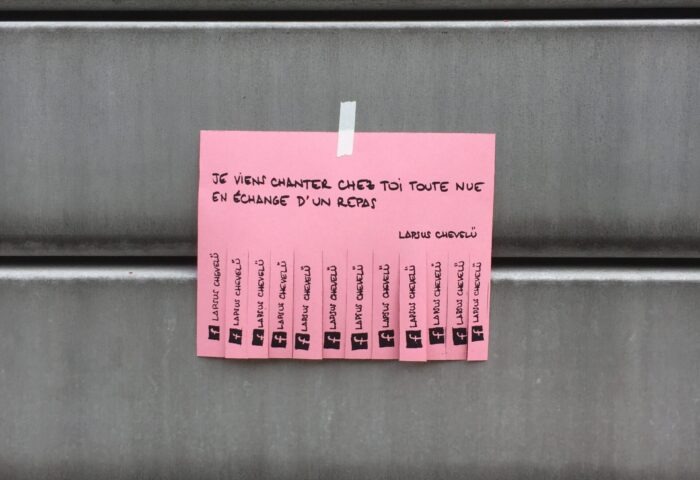 JE VIENS CHANTER CHEZ TOI TOUTE NUE
EN ÉCHANGE D'UN REPAS
LAPSUS CHEVELÜ
f LAPSUS CHEVELÜ
f LAPSUS CHEVELÜ
f LAPSUS CHEVELÜ
f LAPSUS CHEVELÜ
f LAPSUS CHEVELÜ
f LAPSUS CHEVELÜ
f LAPSUS CHEVELÜ
f LAPSUS CHEVELÜ
f LAPSUS CHEVELÜ
f LAPSUS CHEVELÜ
f LAPSUS CHEVELÜ
f LAPSUS CHEVELÜ